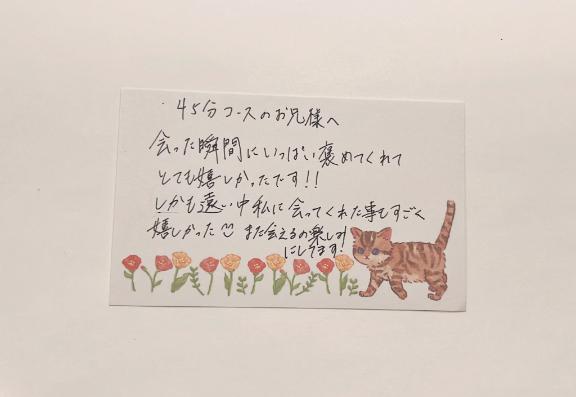 45分コースのお兄様へ
会った瞬間にいっぱい褒めてくれて
とても嬉しかったです!!
しかも遠い中私に会ってくれた事もすごく
嬉しかった☺ また会えるの楽しみ
にしてます!